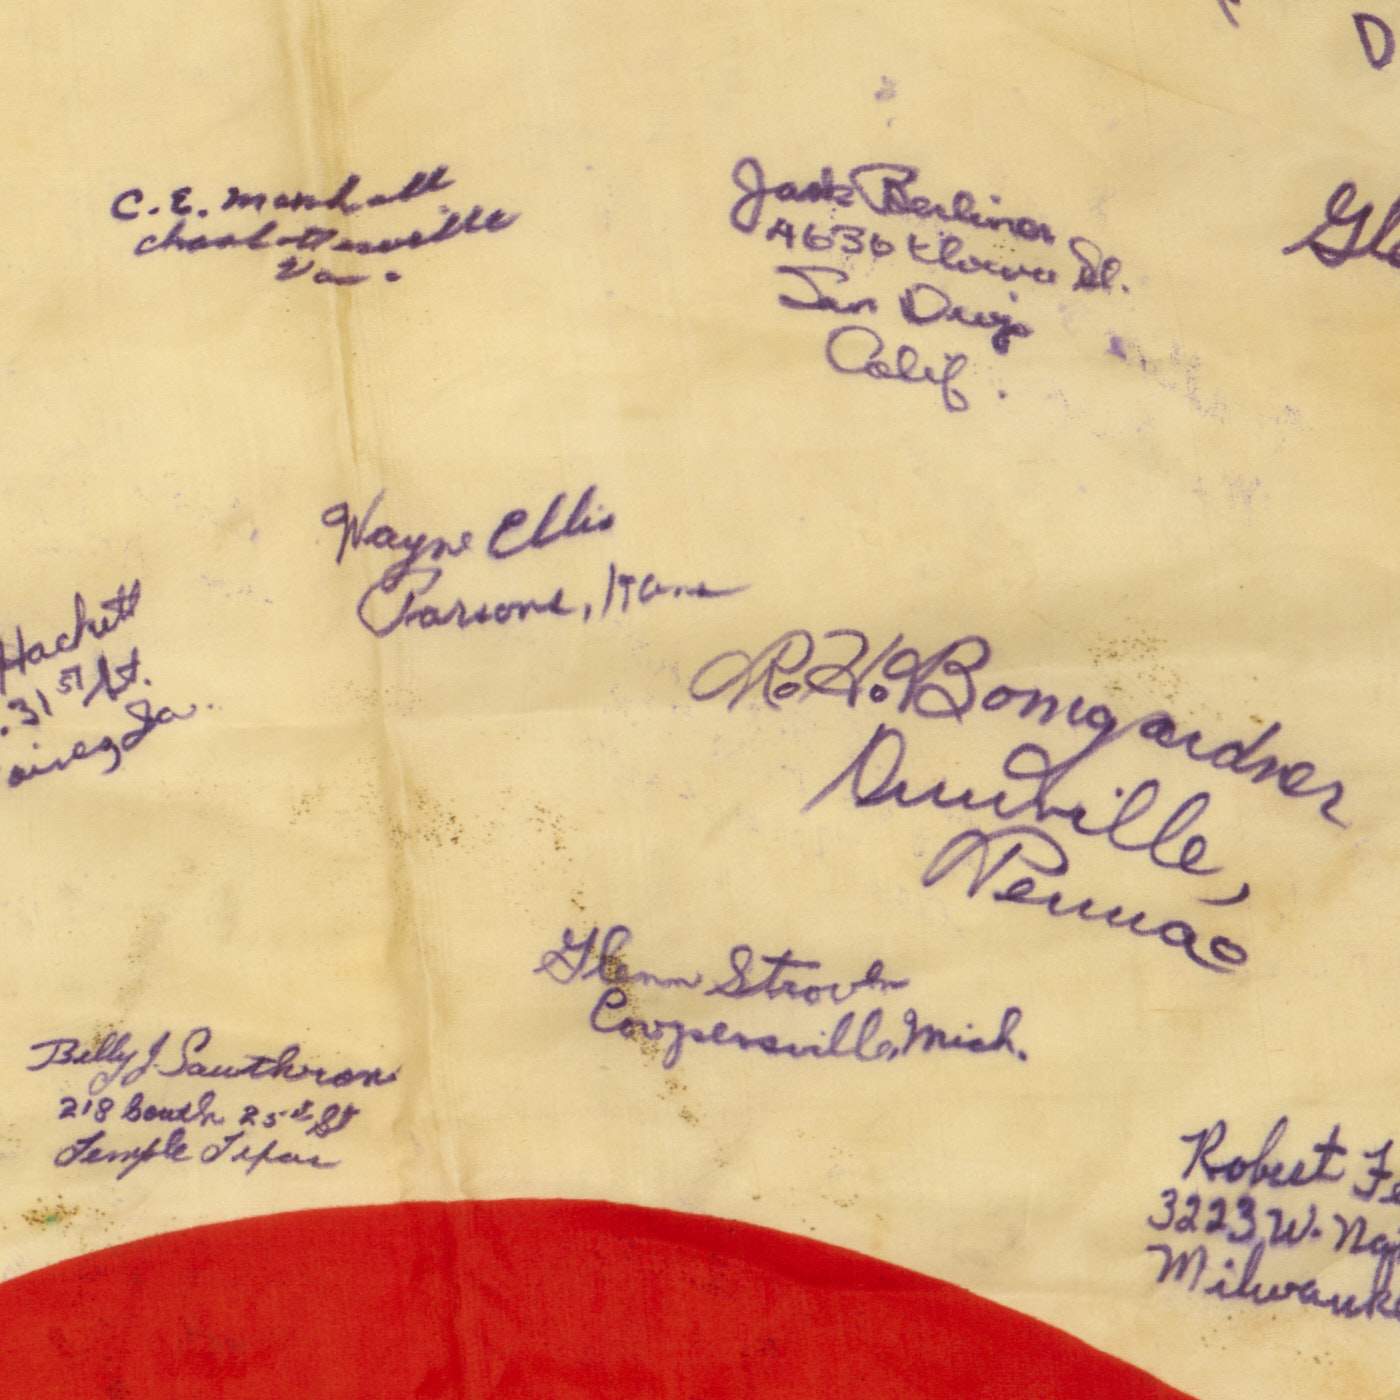 D
C. E. Marshall
Charlottesville
Va.
Jack Berliner
4636 Iowa St.
San Diego
Calif.
Gl
Wayne Ellis
Parsons, Kans
Hackett
. 31 ST St.
oines Ia.
R. H. Bomgardner
Annville,
Penna.
Glenn Stroven
Coopersville, Mich.
Billy J. Sawthron
218 South 25th St
Temple Texas
Robert Fe
3223 W. Na
Milwauke